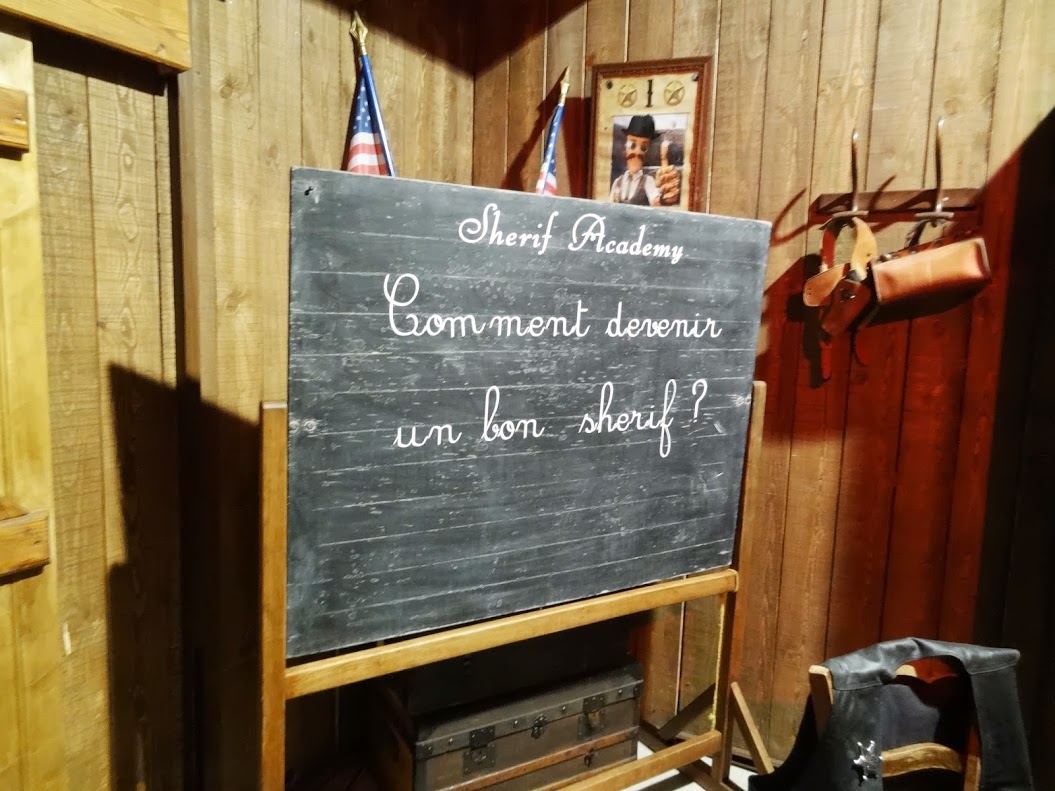 1
Sherif Academy
Comment devenir
un bon sherif ?